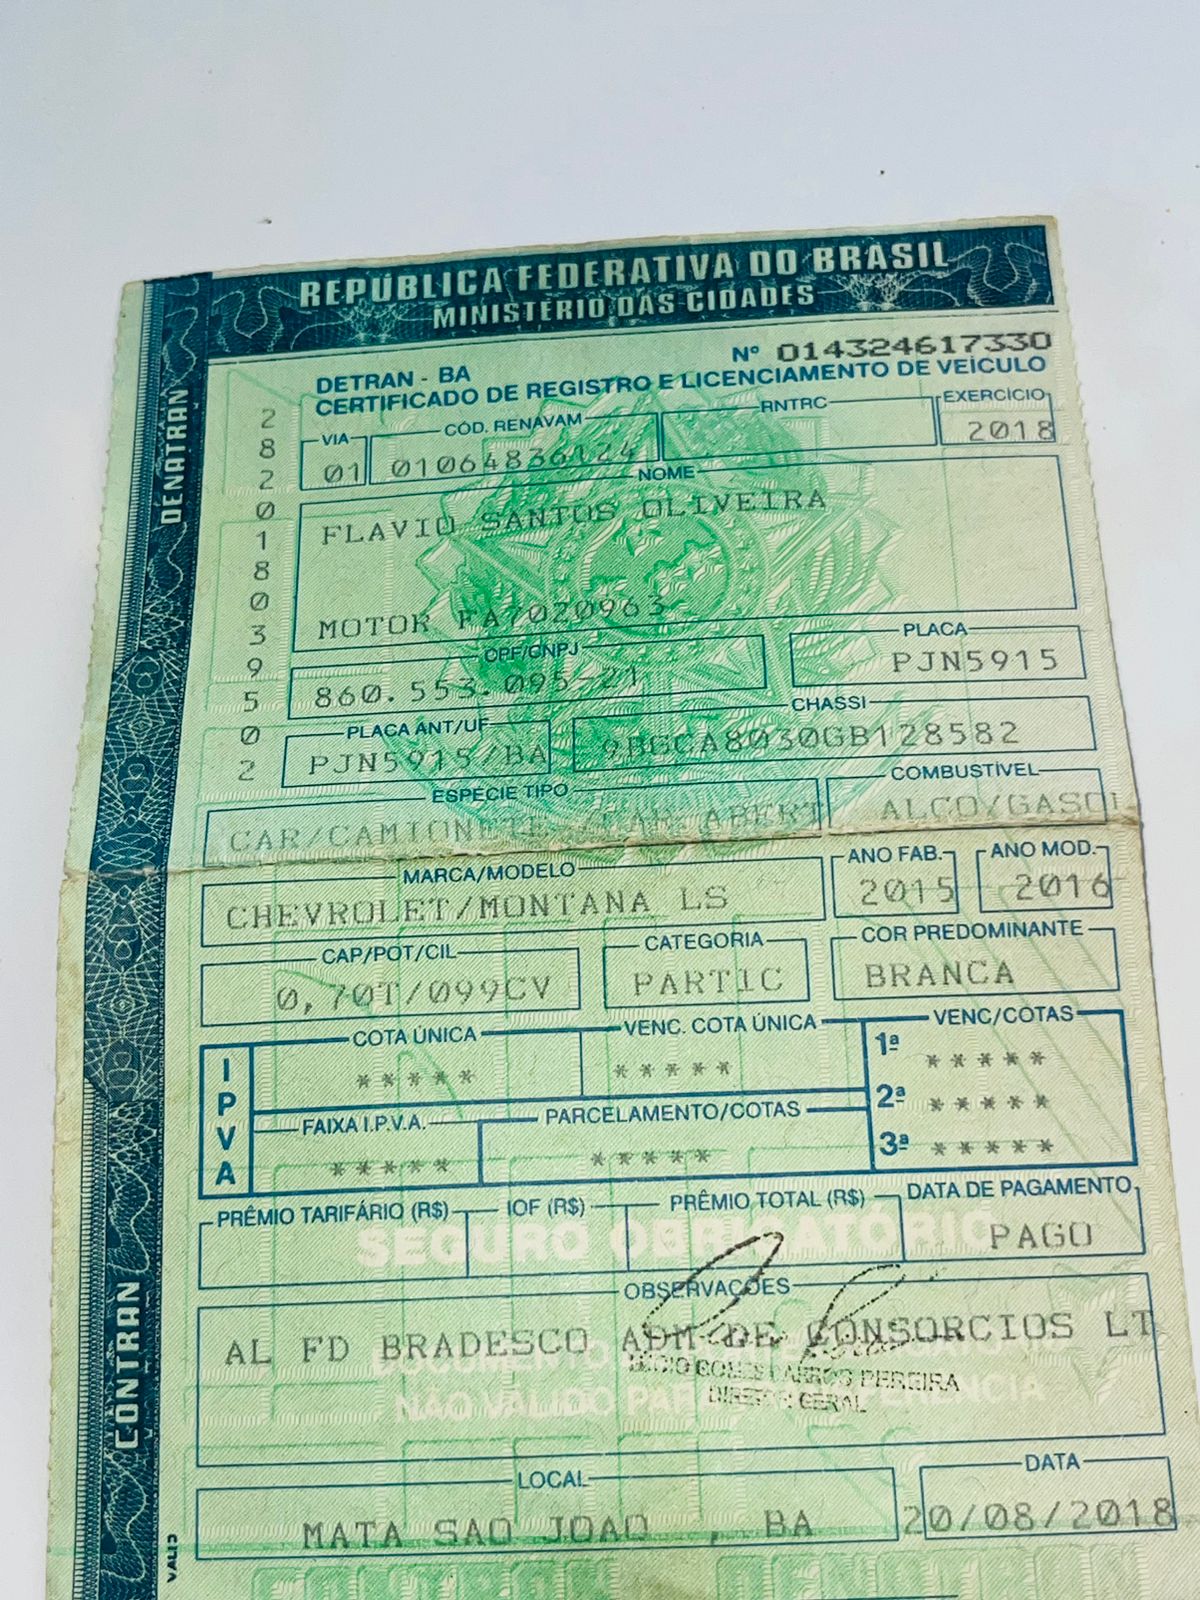 REPÚBLICA FEDERATIVA DO BRASIL
MINISTÉRIO DAS CIDADES
DENATRAN
CONTRAN
VALID
282018039502
DETRAN - BA
Nº 014324617330
CERTIFICADO DE REGISTRO E LICENCIAMENTO DE VEÍCULO
VIA
CÓD. RENAVAM
RNTRC
EXERCÍCIO
01
01064836124
2018
NOME
FLAVIO SANTOS OLIVEIRA
MOTOR FA7020963
CPF/CNPJ
PLACA
860.553.095-21
PJN5915
PLACA ANT/UF
CHASSI
PJN5915/BA
9BGCA8030GB128582
ESPÉCIE TIPO
COMBUSTÍVEL
CAR/CAMIONETE /CAR ABERT
ALCO/GASOL
MARCA/MODELO
ANO FAB.
ANO MOD.
CHEVROLET/MONTANA LS
2015
2016
CAP/POT/CIL
CATEGORIA
COR PREDOMINANTE
0,70T/099CV
PARTIC
BRANCA
IPVA
COTA ÚNICA
VENC. COTA ÚNICA
VENC/COTAS
*****
*****
1ª *****
2ª *****
3ª *****
FAIXA I.P.V.A.
PARCELAMENTO/COTAS
*****
*****
PRÊMIO TARIFÁRIO (R$)
IOF (R$)
PRÊMIO TOTAL (R$)
DATA DE PAGAMENTO
SEGURO OBRIGATÓRIO
PAGO
OBSERVAÇÕES
AL FD BRADESCO ADM DE CONSORCIOS LT
LÚCIO GOMES BARROS PEREIRA
DIRETOR GERAL
NÃO VÁLIDO PARA TRANSFERÊNCIA
LOCAL
DATA
MATA SAO JOAO , BA
20/08/2018
CONTRAN DENATRAN